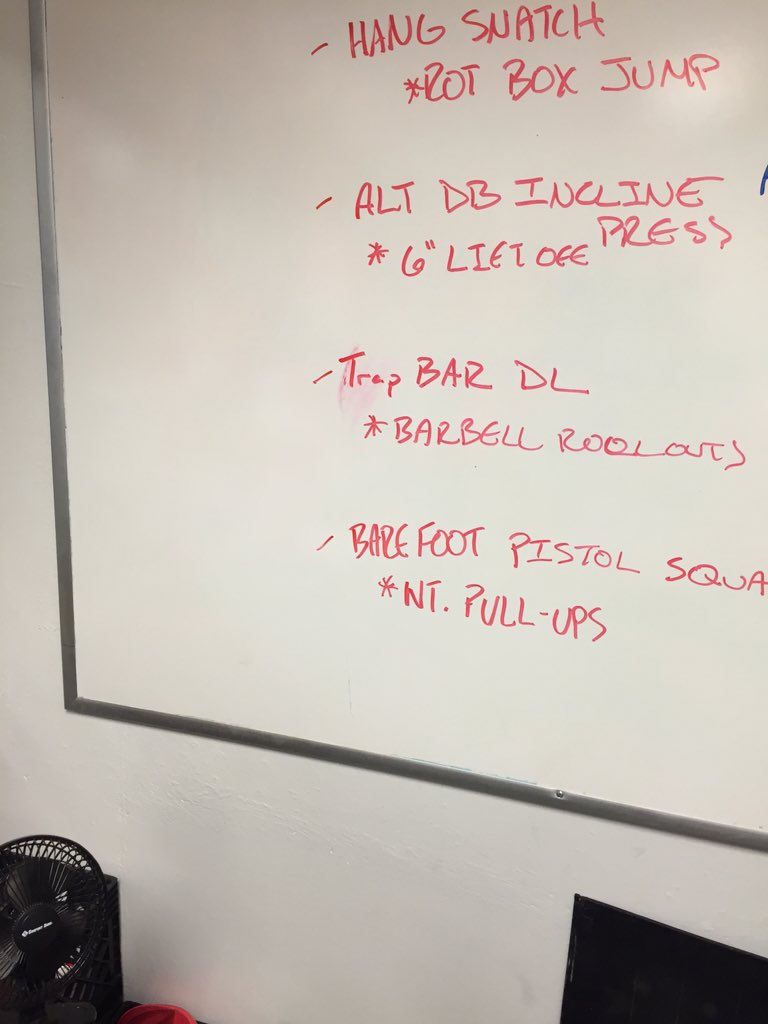 - HANG SNATCH
*ROT BOX JUMP
- ALT DB INCLINE
PRESS
* 6" LIFT OFF
- Trap BAR DL
*BARBELL ROOLOUTS
- BAREFOOT PISTOL SQUA
*NT. PULL-UPS